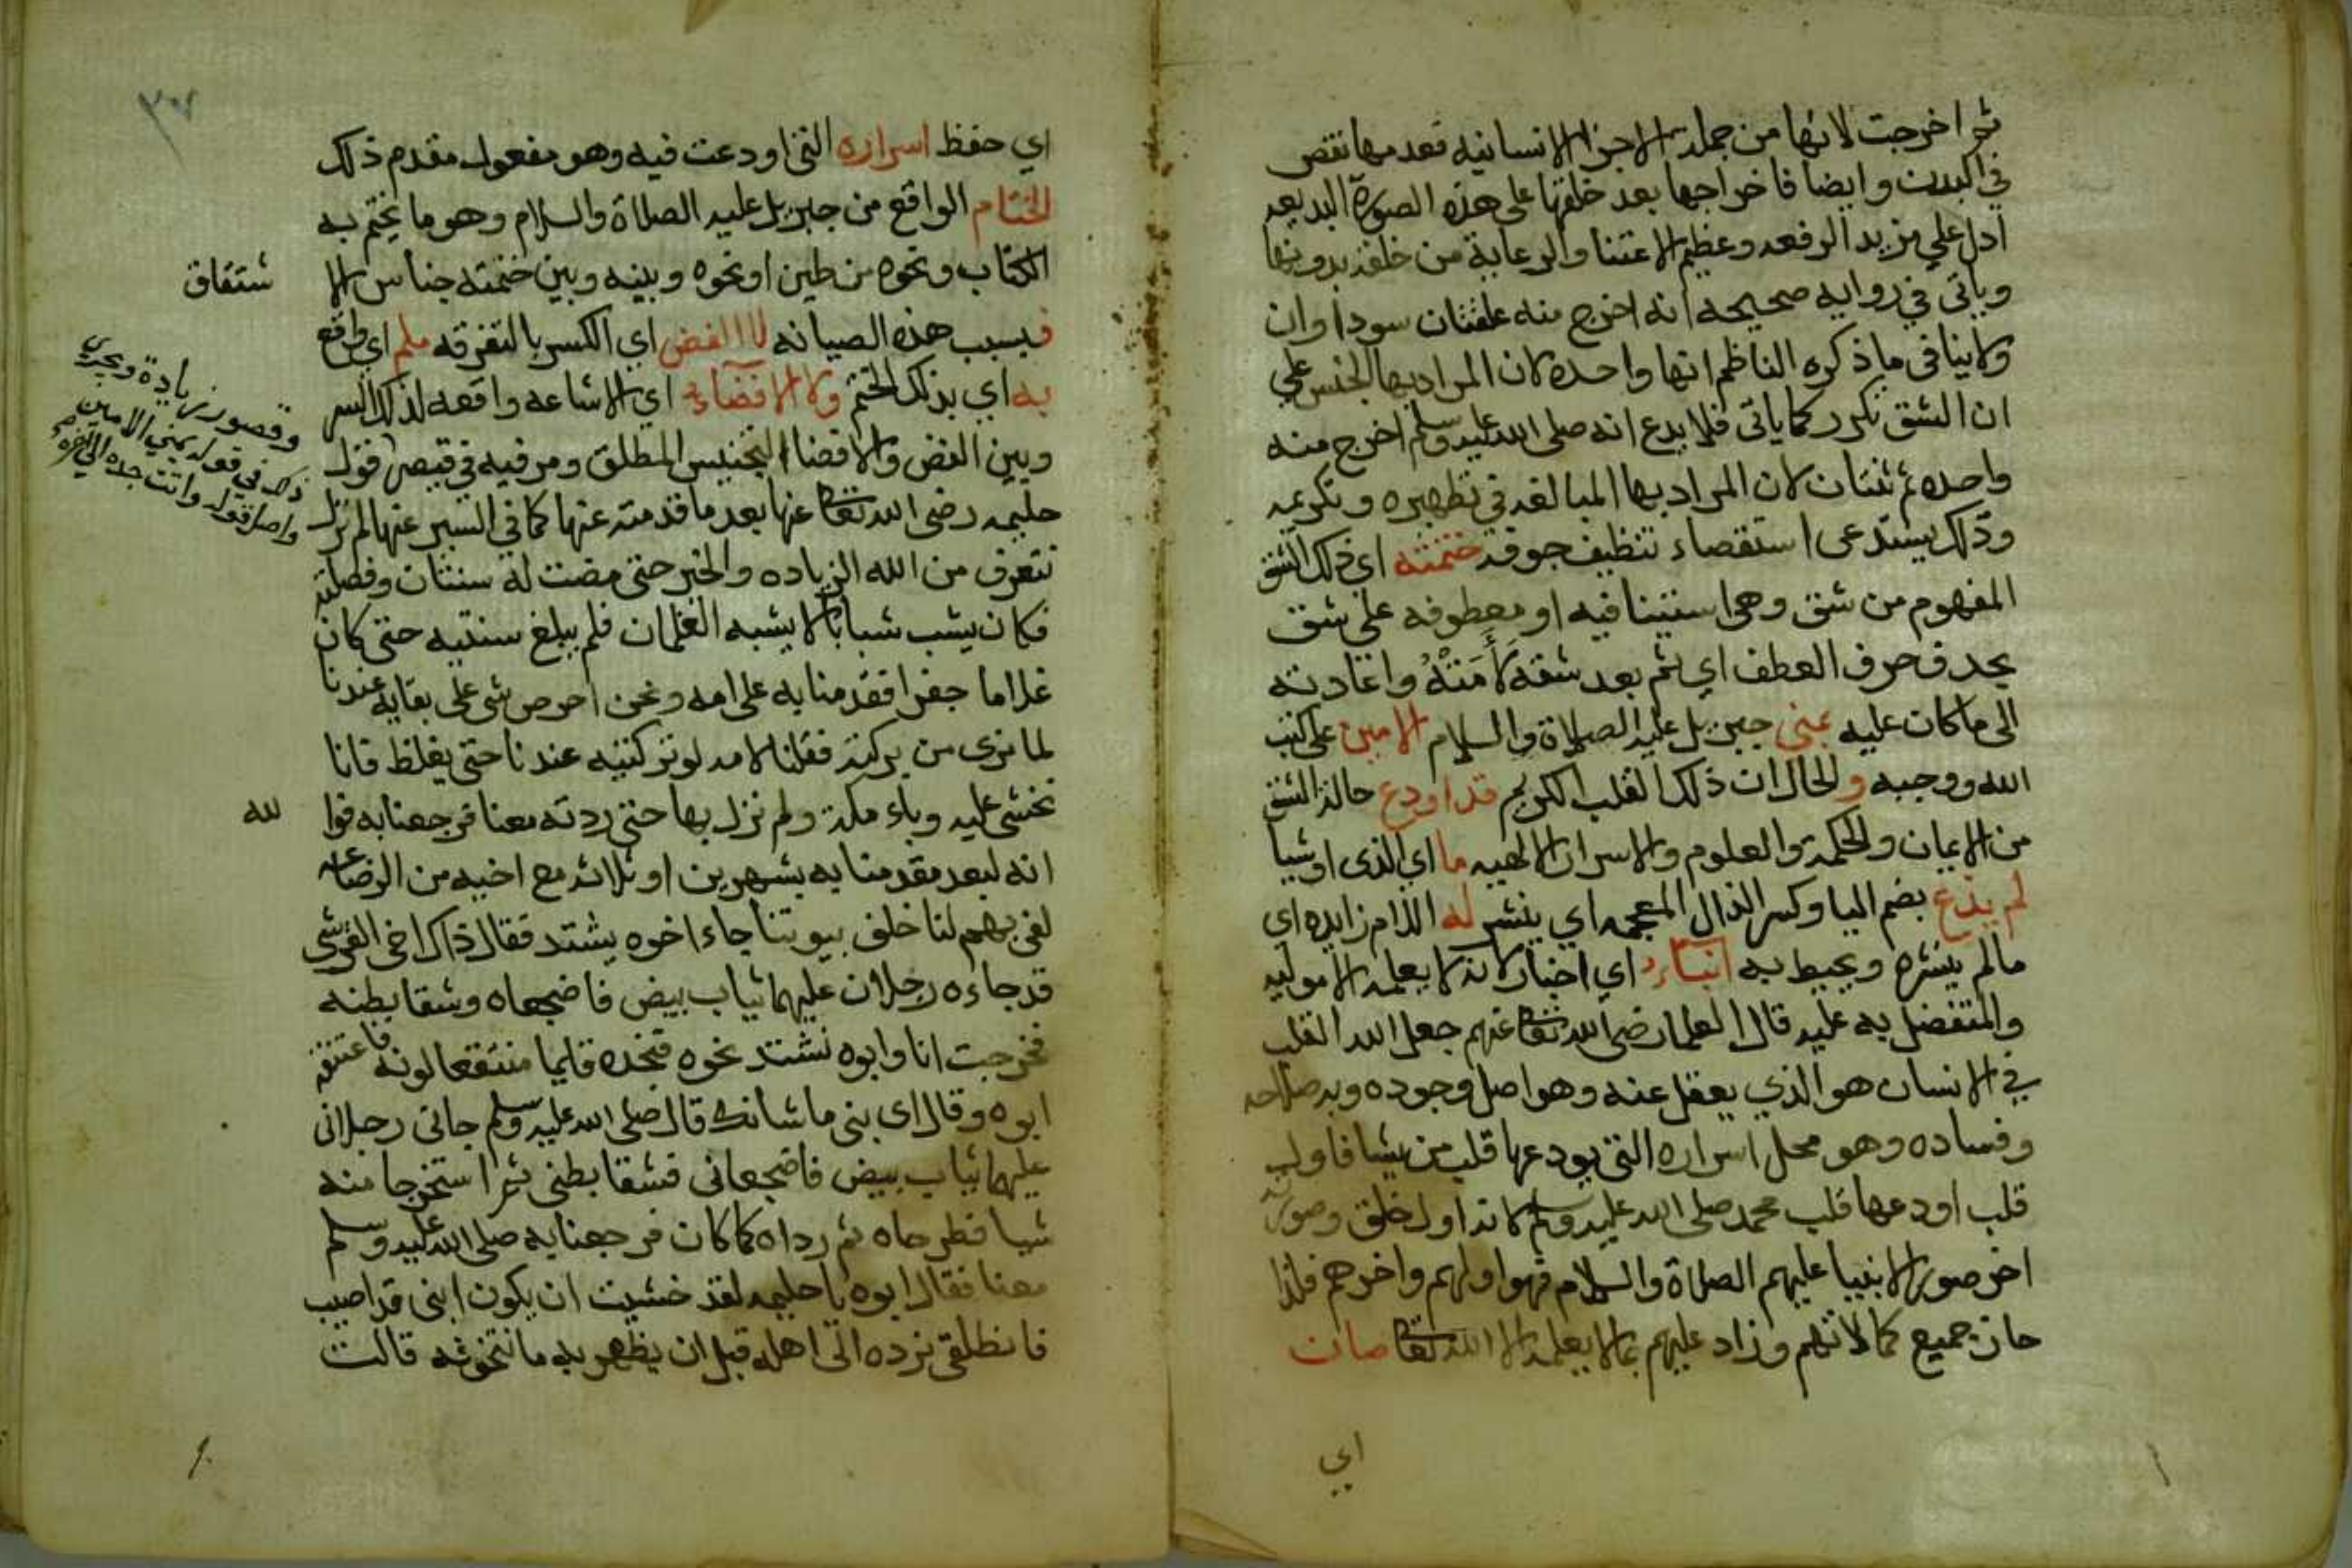 ثم اخرجت لانها من جملة الاجزا الانسانيه فعدمها نقص
في البدن وايضا فاخراجها بعد خلقها على هذه الصورة البديعه
ادل على مزيد الرفعه وعظيم الاعتنا والرعاية من خلقه بدونها
وياتى في روايه صحيحه انه اخرج منه علقتان سوداوان
ولا ينافى ما ذكره الناظم انها واحده لان المراد بها الجنس على
ان الشق تكرر كما ياتى فلا بدع انه صلى الله عليه وسلم اخرج منه
واحده ثم ثنتان لان المراد بها المبالغه في تطهيره وتكريمه
وذلك يستدعى استقصاء تنظيف جوفه ختمته اي ذلك الشق
المفهوم من شق وهى استينافيه او معطوفه على شق
بحذف حرف العطف اي ثم بعد شقه لأمته واعادته
الى ما كان عليه يمنى جبريل عليه الصلاة والسلام الامين على كتب
الله ووحيه والحال ان ذلك القلب الكريم قد اودع حالة الشق
من الايمان والحكمة والعلوم والاسرار الالهيه ما اي الذى او شيا
لم يذع بضم اليا وكسر الذال المعجمه اي ينشر له اللام زايده اي
مالم ينشره ويحيط به انباء اي اخبار لانه لا يعلمه الا موليه
والمتفضل به عليه قال العلما رضى الله تعالى عنهم جعل الله القلب
في الانسان هو الذي يعقل عنه وهو اصل وجوده وبه صلاحه
وفساده وهو محل اسراره التى يودعها قلب من يشا فاول
قلب اودعها قلب محمد صلى الله عليه وسلم لانه اول خلق وصورته
اخر صور الانبيا عليهم الصلاة والسلام فهو اولهم واخرهم فلذا
حاز جميع كمالاتهم وزاد عليهم بما لا يعلمه الا الله تعالى صان
اي
اي حفظ اسراره التى اودعت فيه وهو مفعول مقدم ذلك
الختام الواقع من جبريل عليه الصلاة والسلام وهو ما يختم به
الكتاب ونحوه من طين او نحوه وبينه وبين ختمته جناس الا
شتقاق
فبسبب هذه الصيانه لا الفض اي الكسر بالتفرقه ملم اي واقع
به اي بذلك الختم ولا الافضاء اي الاشاعه واقعه لذلك السر
وقصور زيادة ويجري
ذلك في قوله يمني الامين
واصل قوله واتت جده الى اخره صح
وبين الفض والافضا التجنيس المطلق ومر فيه في قيصر قول
حليمه رضى الله تعالى عنها بعد ما قدمته عنها كما في السير عنها لم نزل
نتعرف من الله الزياده والخير حتى مضت له سنتان وفصلته
فكان يشب شبابا لا يشبه الغلمان فلم يبلغ سنتيه حتى كان
غلاما جفرا فقدمنا به على امه ونحن احرص شى على بقايه عندنا
لما نرى من بركته فقلنا لامه لو تركتيه عندنا حتى يغلظ فانا
نخشى عليه وباء مكة ولم نزل بها حتى ردته معنا فرجعنا به فوا
لله
انه لبعد مقدمنا به بشهرين او ثلاثه مع اخيه من الرضاعه
لفى بهم لنا خلف بيوتنا جاء اخوه يشتد فقال ذاك اخى القرشى
قد جاءه رجلان عليهما ثياب بيض فاضجعاه وشقا بطنه
فخرجت انا وابوه نشتد نحوه فنجده قايما منتقعا لونه فاعتنقه
ابوه وقال اى بنى ما شانك قال صلى الله عليه وسلم جانى رجلان
عليهما ثياب بيض فاضجعانى فشقا بطنى ثم استخرجا منه
شيا فطرحاه ثم رداه كما كان فرجعنا به صلى الله عليه وسلم
معنا فقال ابوه يا حليمه لقد خشيت ان يكون ابنى قد اصيب
فانطلقى نرده الى اهله قبل ان يظهر به ما نتخوفه قالت